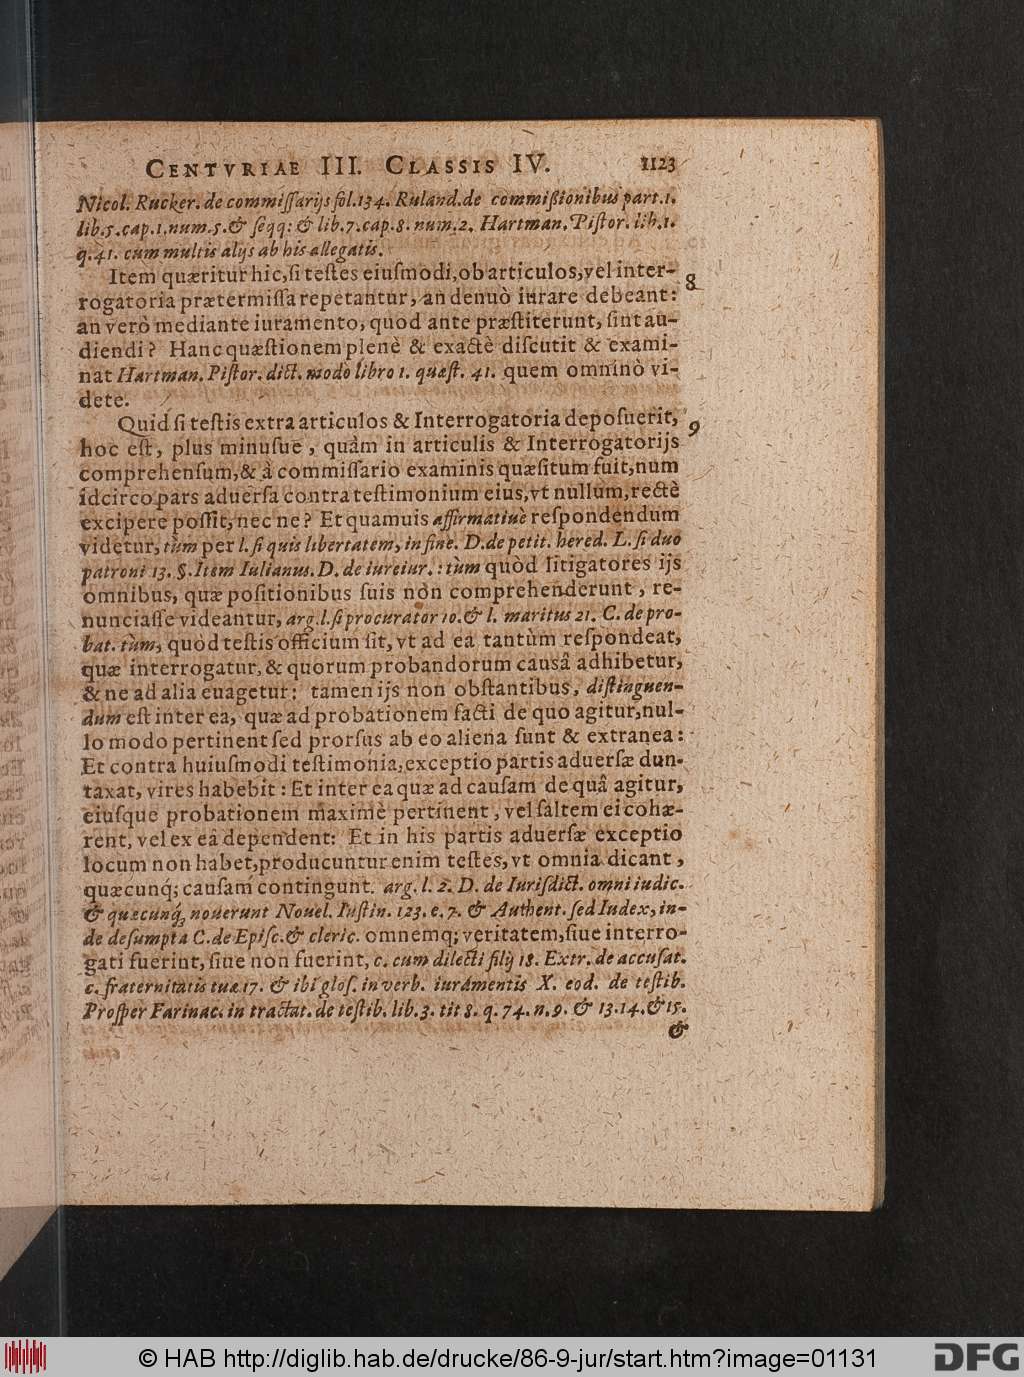 CENTVRIAE III. CLASSIS IV. 1123
Nicol. Rucker. de commiſſarijs fol.134. Ruland.de commißionibus part.1.
lib.5.cap.1.num.5.& ſeqq: & lib.7.cap.8. num.2. Hartman. Piſtor. lib.1.
q.41. cum multis alijs ab his allegatis.
Item quæritur hic, ſi teſtes eiuſmodi, ob articulos, vel inter-
8
rogatoria prætermiſſa repetantur, an denuò iurare debeant:
an verò mediante iuramento, quod ante præſtiterunt, ſint au-
diendi? Hanc quæſtionem plenè & exactè diſcutit & exami-
nat Hartman. Piſtor. dict. modo libro 1. quæſt. 41. quem omninò vi-
dete.
Quid ſi teſtis extra articulos & Interrogatoria depoſuerit,
9
hoc eſt, plus minuſue, quàm in articulis & Interrogatorijs
comprehenſum, & à commiſſario examinis quæſitum fuit, num
idcirco pars aduerſa contra teſtimonium eius, vt nullum, rectè
excipere poſſit, nec ne? Et quamuis affirmatiuè reſpondendum
videtur, tùm per l. ſi quis libertatem, in fine. D.de petit. hered. L. ſi duo
patroni 13. §. Item Iulianus. D. de iureiur. : tùm quòd litigatores ijs
omnibus, quæ poſitionibus ſuis non comprehenderunt, re-
nunciaſſe videantur, arg.l.ſi procurator 10.& l. maritus 21. C. de pro-
bat. tùm, quòd teſtis officium ſit, vt ad ea tantùm reſpondeat,
quæ interrogatur, & quorum probandorum causâ adhibetur,
& ne ad alia euagetur: tamen ijs non obſtantibus, diſtinguen-
dum eſt inter ea, quæ ad probationem facti de quo agitur, nul-
lo modo pertinent ſed prorſus ab eo aliena ſunt & extranea:
Et contra huiuſmodi teſtimonia, exceptio partis aduerſæ dun-
taxat, vires habebit : Et inter ea quæ ad cauſam de quâ agitur,
eiuſque probationem maximè pertinent, vel ſaltem ei cohæ-
rent, vel ex eâ dependent: Et in his partis aduerſæ exceptio
locum non habet, producuntur enim teſtes, vt omnia dicant,
quæcunq́; cauſam contingunt. arg. l. 2. D. de Iuriſdict. omni iudic.
& quæcunq́, nouerunt Nouel. Iuſtin. 123. c. 7. & Authent. ſed Iudex, in-
de deſumpta C.de Epiſc.& cleric. omnemq; veritatem, ſiue interro-
gati fuerint, ſiue non fuerint, c. cum dilecti filij 18. Extr. de accuſat.
c. fraternitatis tuæ 17. & ibi gloſ. in verb. iuramentis X. eod. de teſtib.
Proſper Farinac. in tractat. de teſtib. lib.3. tit 8. q. 74. n.9. & 13.14.& 15.
&
© HAB http://diglib.hab.de/drucke/86-9-jur/start.htm?image=01131
DFG